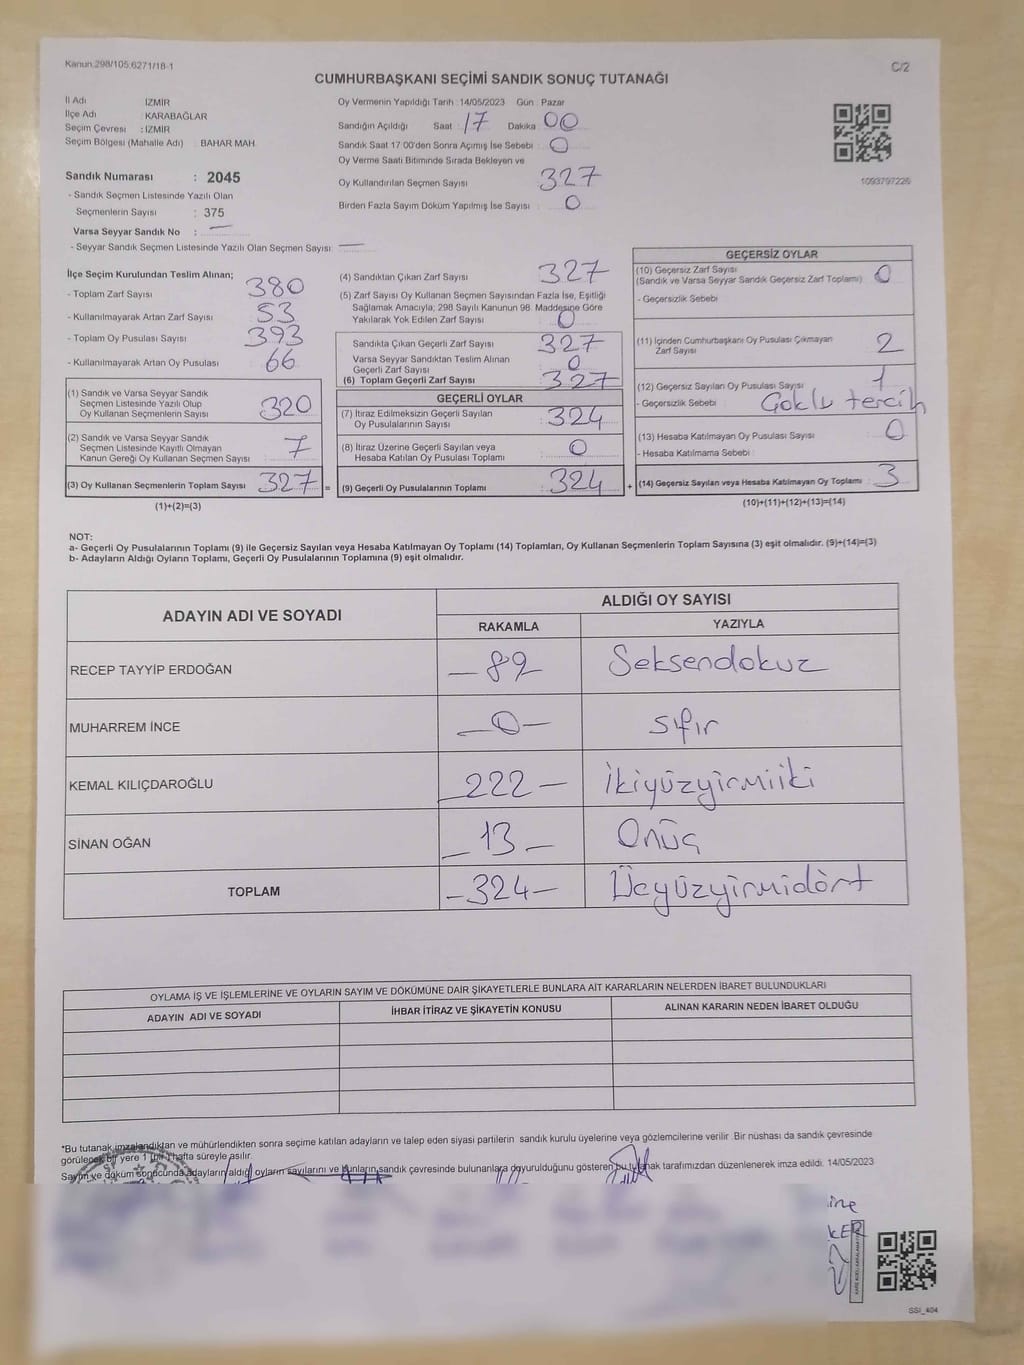 Kanun:298/105;6271/18-1
C/2
CUMHURBAŞKANI SEÇİMİ SANDIK SONUÇ TUTANAĞI
İl Adı İZMİR
İlçe Adı : KARABAĞLAR
Seçim Çevresi : İZMİR
Seçim Bölgesi (Mahalle Adı) : BAHAR MAH.
Sandık Numarası : 2045
- Sandık Seçmen Listesinde Yazılı Olan
Seçmenlerin Sayısı : 375
Varsa Seyyar Sandık No : —
- Seyyar Sandık Seçmen Listesinde Yazılı Olan Seçmen Sayısı: —
Oy Vermenin Yapıldığı Tarih :14/05/2023 Gün : Pazar
Sandığın Açıldığı Saat : 17 Dakika : 00
Sandık Saat 17.00'den Sonra Açımış İse Sebebi : 0
Oy Verme Saati Bitiminde Sırada Bekleyen ve
Oy Kullandırılan Seçmen Sayısı : 327
Birden Fazla Sayım Döküm Yapılmış İse Sayısı : 0
1093797226
İlçe Seçim Kurulundan Teslim Alınan;
- Toplam Zarf Sayısı : 380
- Kullanılmayarak Artan Zarf Sayısı : 53
- Toplam Oy Pusulası Sayısı : 393
- Kullanılmayarak Artan Oy Pusulası : 66
(1) Sandık ve Varsa Seyyar Sandık
Seçmen Listesinde Yazılı Olup
Oy Kullanan Seçmenlerin Sayısı : 320
(2) Sandık ve Varsa Seyyar Sandık
Seçmen Listesinde Kayıtlı Olmayan
Kanun Gereği Oy Kullanan Seçmen Sayısı : 7
(3) Oy Kullanan Seçmenlerin Toplam Sayısı : 327 =
(1)+(2)=(3)
(4) Sandıktan Çıkan Zarf Sayısı : 327
(5) Zarf Sayısı Oy Kullanan Seçmen Sayısından Fazla İse, Eşitliği
Sağlamak Amacıyla; 298 Sayılı Kanunun 98. Maddesine Göre
Yakılarak Yok Edilen Zarf Sayısı : 0
Sandıkta Çıkan Geçerli Zarf Sayısı : 327
Varsa Seyyar Sandıktan Teslim Alınan
Geçerli Zarf Sayısı : 0
(6) Toplam Geçerli Zarf Sayısı : 327
GEÇERLİ OYLAR
(7) İtiraz Edilmeksizin Geçerli Sayılan
Oy Pusulasının Sayısı : 324
(8) İtiraz Üzerine Geçerli Sayılan veya
Hesaba Katılan Oy Pusulası Toplamı : 0
(9) Geçerli Oy Pusulalarının Toplamı : 324 +
GEÇERSİZ OYLAR
(10) Geçersiz Zarf Sayısı : 0
(Sandık ve Varsa Seyyar Sandık Geçersiz Zarf Toplamı)
- Geçersizlik Sebebi
(11) İçinden Cumhurbaşkanı Oy Pusulası Çıkmayan
Zarf Sayısı : 2
(12) Geçersiz Sayılan Oy Pusulası Sayısı : 1
- Geçersizlik Sebebi : Çoklu tercih
(13) Hesaba Katılmayan Oy Pusulası Sayısı : 0
- Hesaba Katılmama Sebebi :
(14) Geçersiz Sayılan veya Hesaba Katılmayan Oy Toplamı : 3
(10)+(11)+(12)+(13)=(14)
NOT:
a- Geçerli Oy Pusulalarının Toplamı (9) ile Geçersiz Sayılan veya Hesaba Katılmayan Oy Toplamı (14) Toplamları, Oy Kullanan Seçmenlerin Toplam Sayısına (3) eşit olmalıdır. (9)+(14)=(3)
b- Adayların Aldığı Oyların Toplamı, Geçerli Oy Pusulalarının Toplamına (9) eşit olmalıdır.
ADAYIN ADI VE SOYADI ALDIĞI OY SAYISI
RAKAMLA YAZIYLA
RECEP TAYYİP ERDOĞAN — 89 Seksendokuz
MUHARREM İNCE — 0 — sıfır
KEMAL KILIÇDAROĞLU — 222 — İkiyüzyirmiiki
SİNAN OĞAN — 13 — Onüç
TOPLAM — 324 — Üçyüzyirmidört
OYLAMA İŞ VE İŞLEMLERİNE VE OYLARIN SAYIM VE DÖKÜMÜNE DAİR ŞİKAYETLERLE BUNLARA AİT KARARLARIN NELERDEN İBARET BULUNDUKLARI
ADAYIN ADI VE SOYADI İHBAR İTİRAZ VE ŞİKAYETİN KONUSU ALINAN KARARIN NEDEN İBARET OLDUĞU
*Bu tutanak imzalandıktan ve mühürlendikten sonra seçime katılan adayların ve talep eden siyasi partilerin sandık kurulu üyelerine veya gözlemcilerine verilir .Bir nüshası da sandık çevresinde
görülecek bir yere 1 (bir) hafta süreyle asılır.
Sayım ve döküm sonucunda adayların aldığı oyların sayılarını ve bunların sandık çevresinde bulunanlara duyurulduğunu gösteren bu tutanak tarafımızdan düzenlenerek imza edildi. 14/05/2023
SSI_404